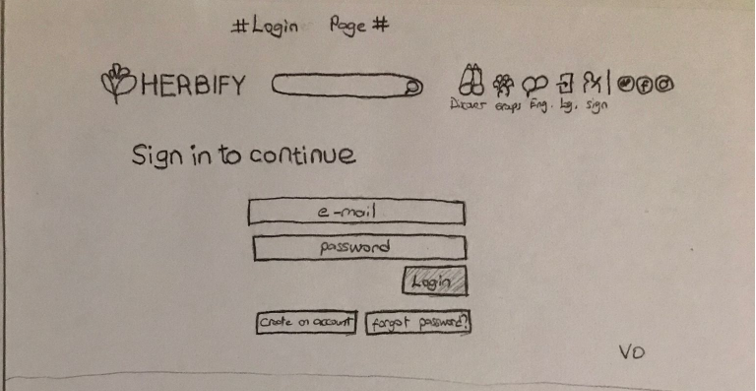 #Login Page#
HERBIFY
Eng. Lg. Sign
Sign in to continue
e-mail
password
Login
Create an account forgot password?
VD